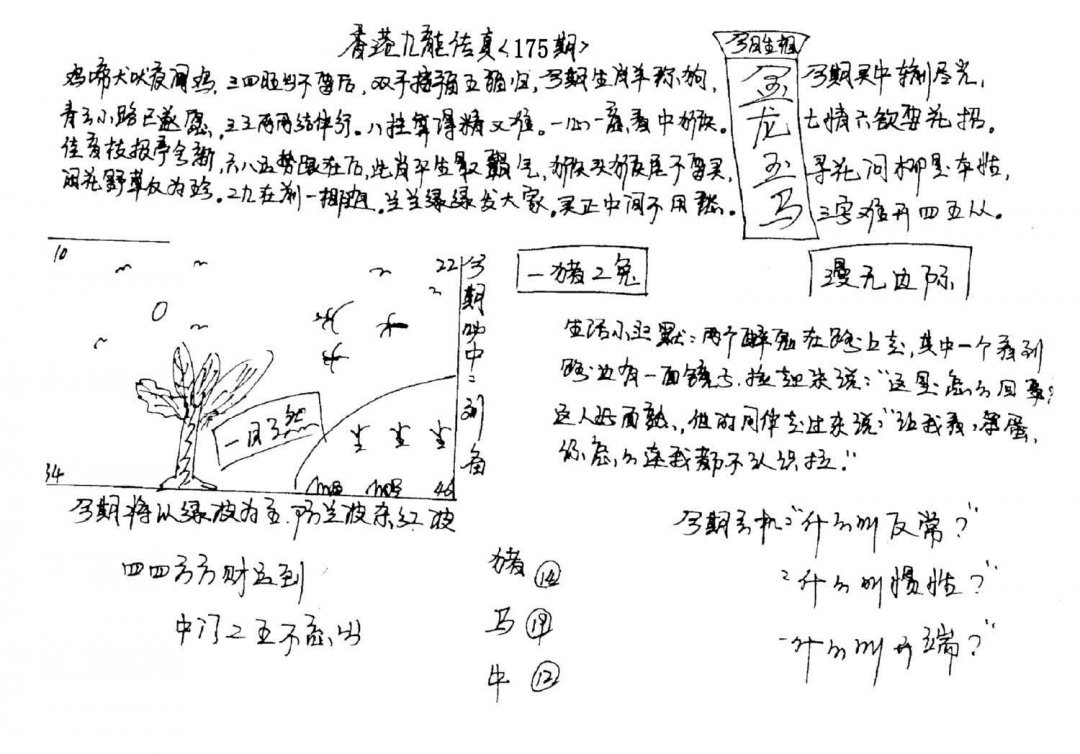 香港九龍传真<175期>
鸡啼犬吠夜闻鸡，三四旺与不留后，双手接福五福归，今期生肖羊称狗，
青云小路已遂愿，三五两两结伴行。八挂算得精又准。一心一意看中猴。
佳音枝报季全新，六八五势跟在后，此肖平生最，猴头猴尾不留灵，
闲花野草仅为珍。二九在前一相。兰兰绿绿发大家，买正中间不用愁。
今日生相
金龙玉马
今期买中
七情六欲要花招。
寻花问柳是本性，
三字难开四五从。
10
22
34
46
一目了然
今期中二利角
一猪二兔
漫无边际
生活小幽默：两个醉鬼在路上走，其中一个看到
路边有一面镜子，捡起来说："这是怎么回事，
这人好面熟，他的同伴走过来说："让我看，笨蛋，
你怎么连我都不认识拉。"
今期将以绿波为主，防兰波杀红波
四四方方财运到
中门二五不
猪⑭
马⑲
牛⑫
今期玄机"什么叫反常？"
"什么叫惯性？"
"什么叫开端？"